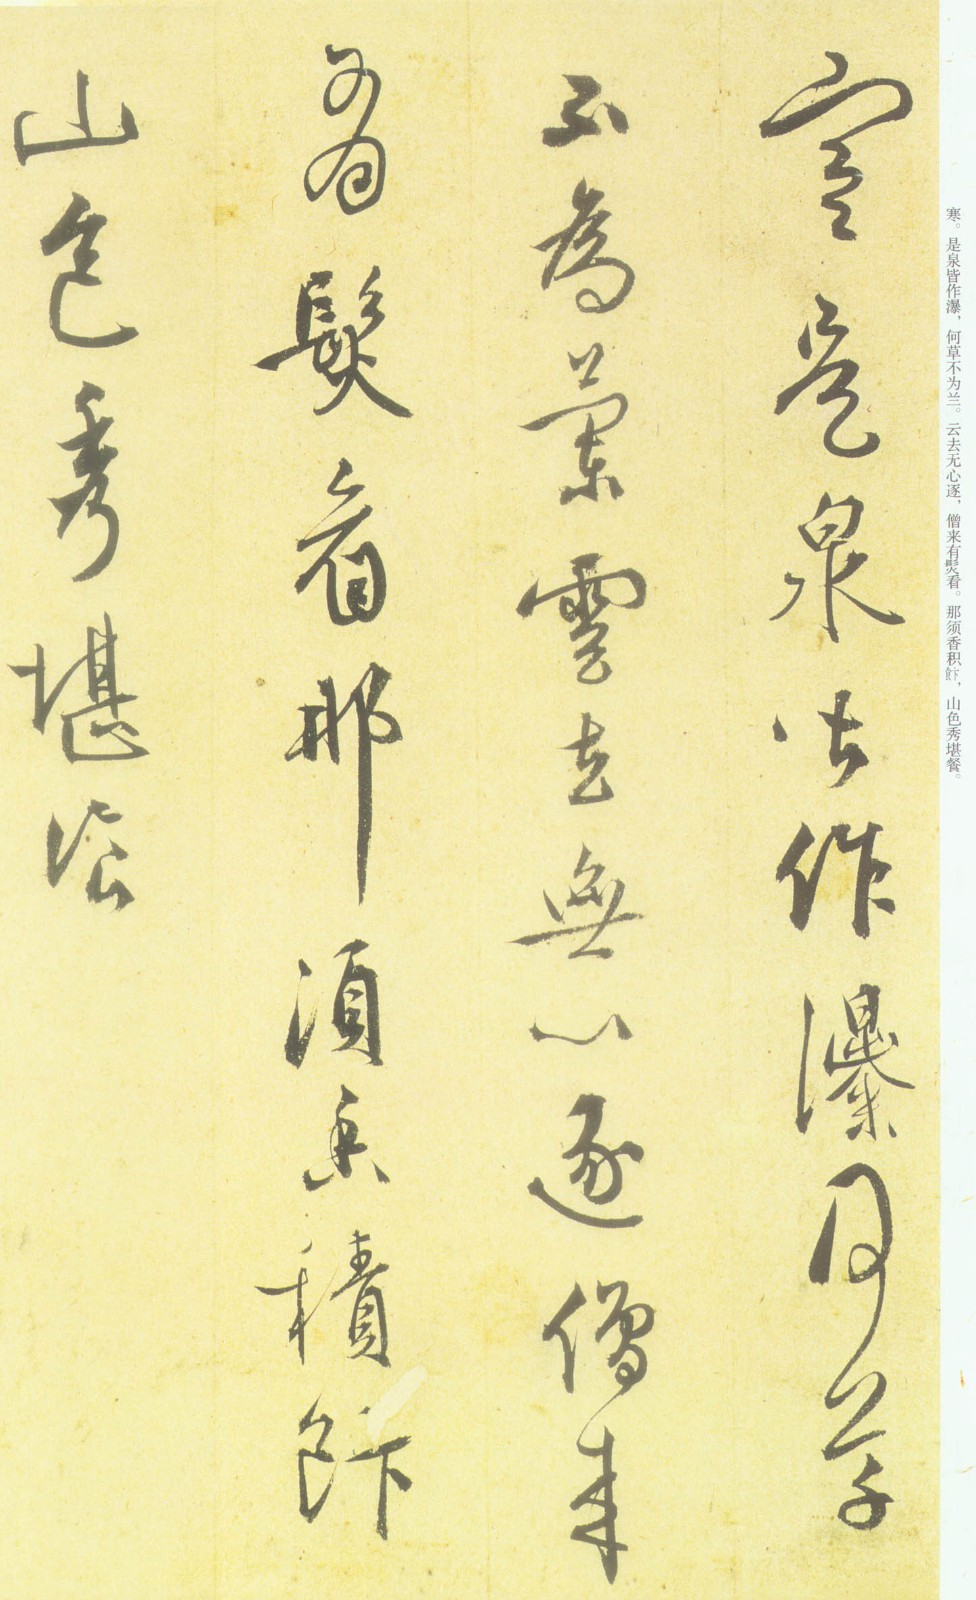 寒是泉皆作瀑何草
不為蘭雲去無心逐僧来
有髮看那須香積飰
山色秀堪湌
寒。是泉皆作瀑，何草不为兰。云去无心逐，僧来有髮看。那须香积飰，山色秀堪餐。